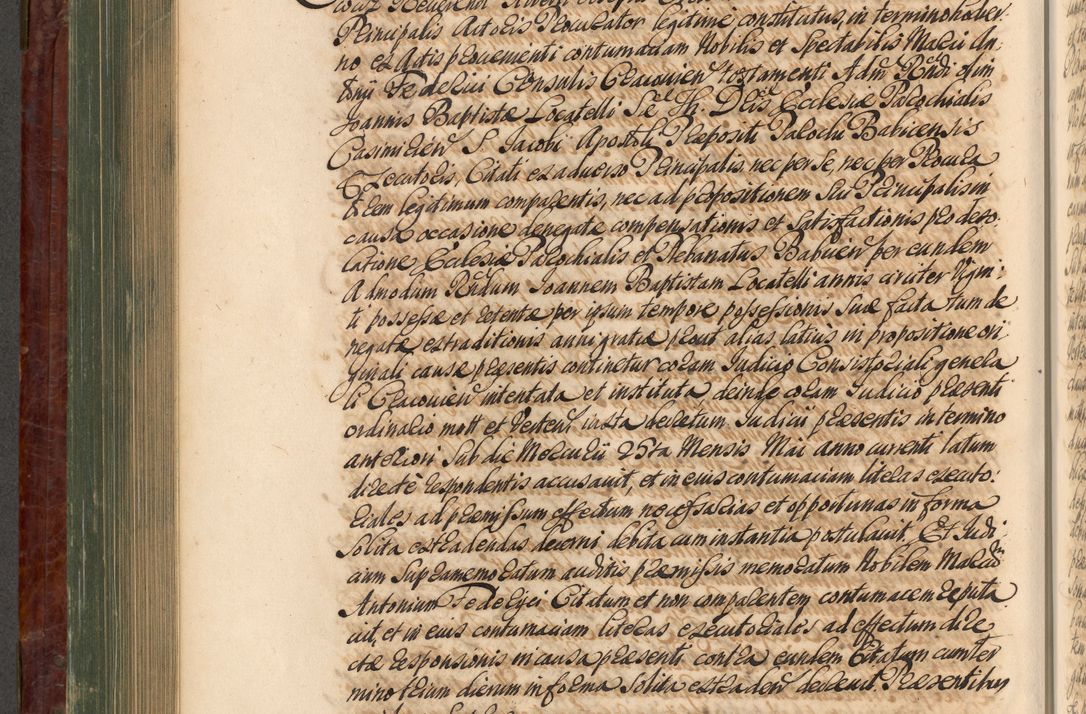 Principalis Actoris Procurator legitime constitutus, in termino hodier-
no ex Actis proveniente contumaciam Nobilis et Spectabilis Marci An-
tonii Federici Consulis Cracovien testamenti Adm Rndi olim
Joannis Baptistæ Locatelli S. Th. Dris Ecclesiæ Parochialis
Casimirien S. Jacobi Apostoli Præpositi Parochi Babicensis
Exequutoris, Citati ex adverso Principalis, nec per se, nec per Procura
torem legitimum comparentis, nec ad propositionem sui Principalis in
causa occasione denegatæ compensationis et satisfactionis pro deso-
latione Ecclesiæ Parochialis et Plebanatus Babicen per eundem
Admodum Rndum Joannem Baptistam Locatelli annis circiter Vigin-
ti possessæ et retentæ per ipsum tempore possessionis suæ facta tum de
negatæ extraditionis anni gratiæ prout alias latius in propositione ori-
ginali causæ præsentis continetur coram Judicio Consistoriali genera
li Cracovien intentata et instituta deinde coram Judicio præsenti
ordinario mott et vertent juxta decretum Judicii præsentis in termino
anteriori Sub die Mercurii 25ta Mensis Mai anno currenti latum
directe respondentis accusavit, et in eius contumaciam literas executo-
riales ad præmissum effectum necessarias et opportunas in forma
solita extradendas decerni debita cum instantia postulavit. Et Judi-
cium Supramemoratum auditis præmissis memoratum Nobilem Marcum
Antonium Federici Citatum et non comparentem contumacem reputa
vit, et in eius contumaciam literas executoriales ad effectum dire
ctæ responsionis in causa præsenti contra eundem Citatum cum ter
mino trium dierum in forma solita extraden decrevit. Præsentibus